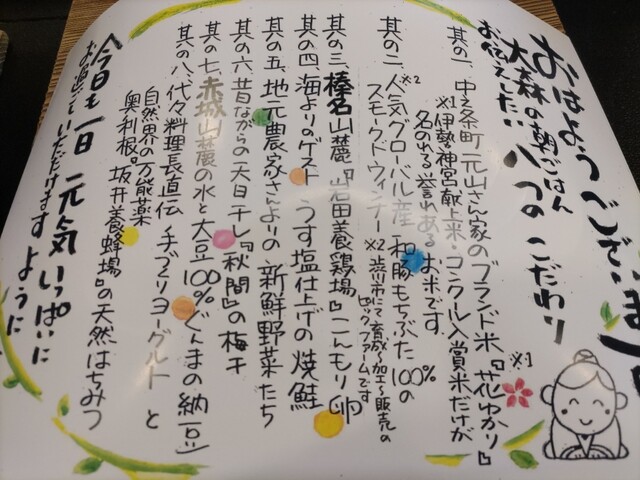 おはようございます
大森の朝ごはん
お伝えしたい 八つの こだわり
其の一、中之条町 元山さん家のブランド米『花ゆかり』※1
※1 伊勢神宮献上米・コンクール入賞米だけが
名のれる誉れある お米です
其の二、人気グローバル産 和豚もちぶた100%の
※2
スモークドウィンナー ※2 渋川市にて育成〜加工〜販売の
ビックファームです
其の三、榛名山麓『岩田養鶏場』こんもり卵
其の四、海よりのゲスト うす塩仕上げの焼鮭
其の五、地元農家さんよりの 新鮮野菜たち
其の六、昔ながらの天日干し『秋間』の梅干
其の七、赤城山麓の水と大豆100%ぐんまの納豆
其の八、代々料理長直伝 手づくりヨーグルト と
自然界の万能薬
奥利根『坂井養蜂場』の天然はちみつ
今日も一日 元気いっぱいに
お過ごしいただけます ように